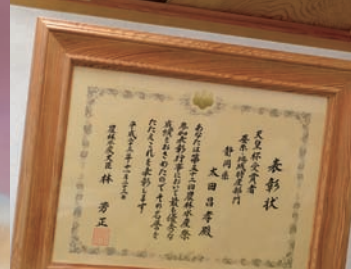 表彰状
天皇杯受賞者
蚕糸・地域特産部門
静岡県
太田昌孝殿
あなたは第五十二回農林水産祭
参加表彰行事において最も優秀な
成績をおさめたのでその名誉を
たたえこれを表彰します
平成二十五年十一月二十三日
農林水産大臣 林 芳正